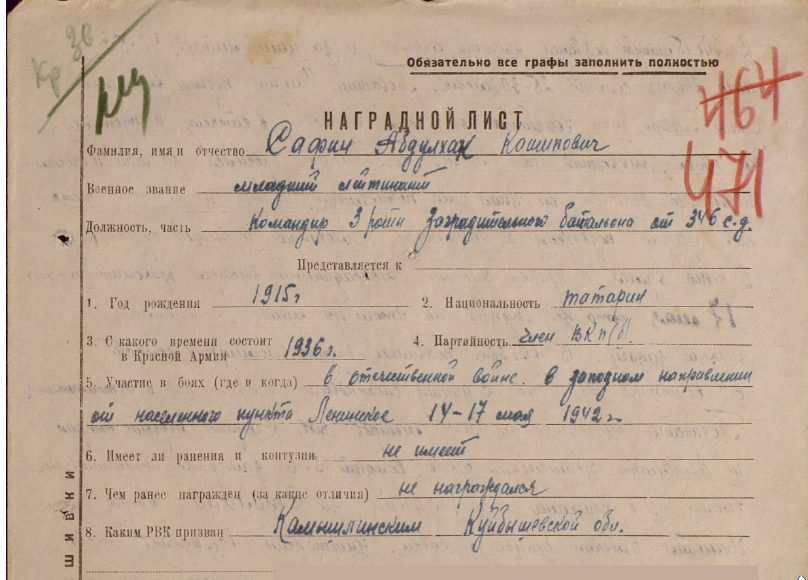 Кр 38
Обязательно все графы заполнить полностью
464
471
НАГРАДНОЙ ЛИСТ
Фамилия, имя и отчество Сафин Абдулхак Кашипович
Военное звание младший лейтинант
Должность, часть Командир 3 роты Заградительного батальона от 346 с.д.
Представляется к
1. Год рождения 1915г 2. Национальность татарин
3. С какого времени состоит в Красной Армии 1936 г. 4. Партийность член ВКП(б)
5. Участие в боях (где и когда) в отечественной войне. в западном направлении
от населенного пункта Ленинское 14-17 мая 1942 г
6. Имеет ли ранения и контузии не имеет
7. Чем ранее награжден (за какие отличия) не награждался
8. Каким РВК призван Камышлинским Куйбышевской обл.
шивки